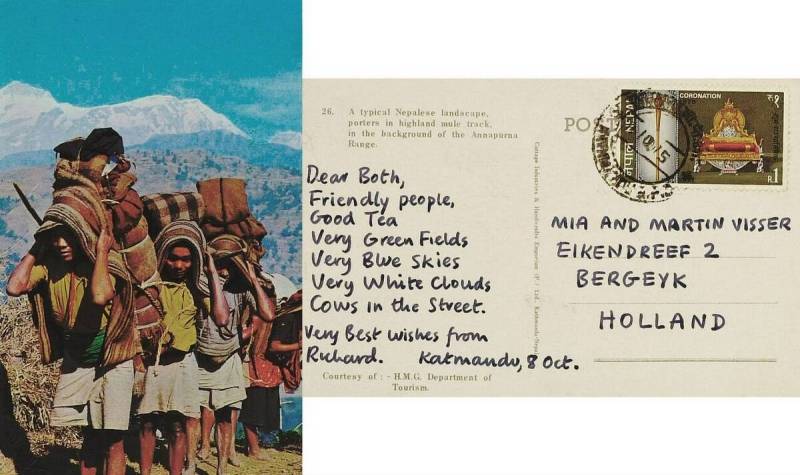 26. A typical Nepalese landacape,
porters in highland mule track,
in the background of the Annapurna
Range.
POST
CORONATION
NEPAL
रु १
R.1
Dear Both,
Friendly people,
Good Tea
Very Green Fields
Very Blue Skies
Very White Clouds
Cows in the Street.
Very Best wishes from
Richard. Katmandu, 8 Oct.
Courtesy of : - H.M.G. Department of
Tourism.
Cottage Industries & Handicrafts Emporium (P.) Ltd., Kathmandu-Nepal
MIA AND MARTIN VISSER
EIKENDREEF 2
BERGEYK
HOLLAND